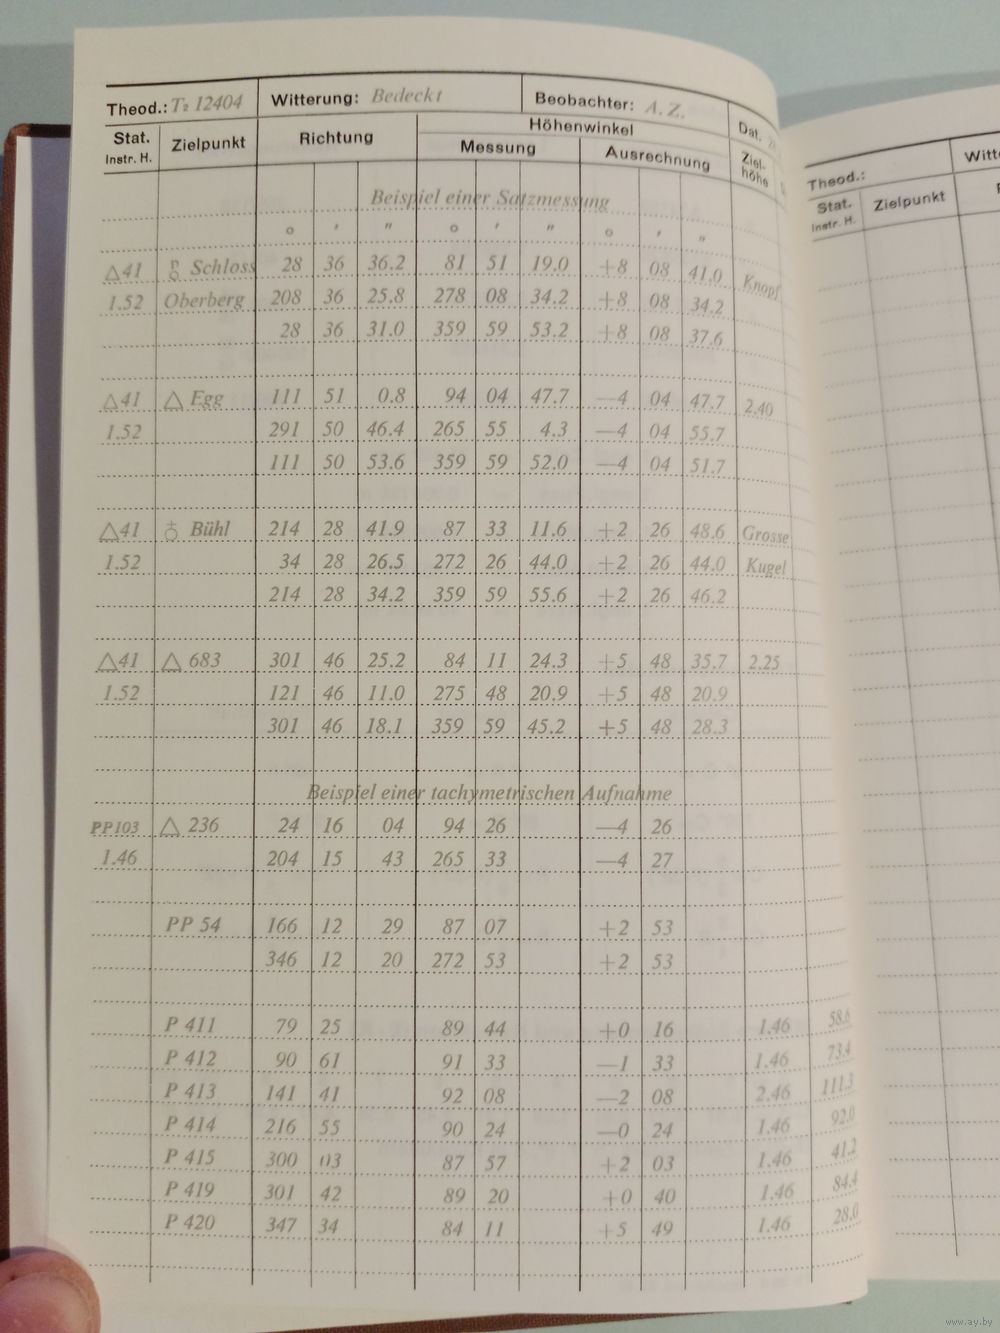 Theod.: T2 12404 Witterung: Bedeckt Beobachter: A. Z. Dat.
Stat. Instr. H. Zielpunkt Richtung Höhenwinkel Messung Ausrechnung Ziel-höhe
Beispiel einer Satzmessung
o ′ ″ o ′ ″ o ′ ″
△41 Schloss 28 36 36.2 81 51 19.0 +8 08 41.0 Knopf
1.52 Oberberg 208 36 25.8 278 08 34.2 +8 08 34.2
28 36 31.0 359 59 53.2 +8 08 37.6
△41 △ Egg 111 51 0.8 94 04 47.7 —4 04 47.7 2.40
1.52 291 50 46.4 265 55 4.3 —4 04 55.7
111 50 53.6 359 59 52.0 —4 04 51.7
△41 ♁ Bühl 214 28 41.9 87 33 11.6 +2 26 48.6 Grosse
1.52 34 28 26.5 272 26 44.0 +2 26 44.0 Kugel
214 28 34.2 359 59 55.6 +2 26 46.2
△41 △ 683 301 46 25.2 84 11 24.3 +5 48 35.7 2.25
1.52 121 46 11.0 275 48 20.9 +5 48 20.9
301 46 18.1 359 59 45.2 +5 48 28.3
Beispiel einer tachymetrischen Aufnahme
PP103 △ 236 24 16 04 94 26 —4 26
1.46 204 15 43 265 33 —4 27
PP 54 166 12 29 87 07 +2 53
346 12 20 272 53 +2 53
P 411 79 25 89 44 +0 16 1.46 58.6
P 412 90 61 91 33 —1 33 1.46 73.4
P 413 141 41 92 08 —2 08 2.46 111.3
P 414 216 55 90 24 —0 24 1.46 92.0
P 415 300 03 87 57 +2 03 1.46 41.2
P 419 301 42 89 20 +0 40 1.46 84.4
P 420 347 34 84 11 +5 49 1.46 28.0
Theod.:
Stat. Instr. H. Zielpunkt
www.ay.by